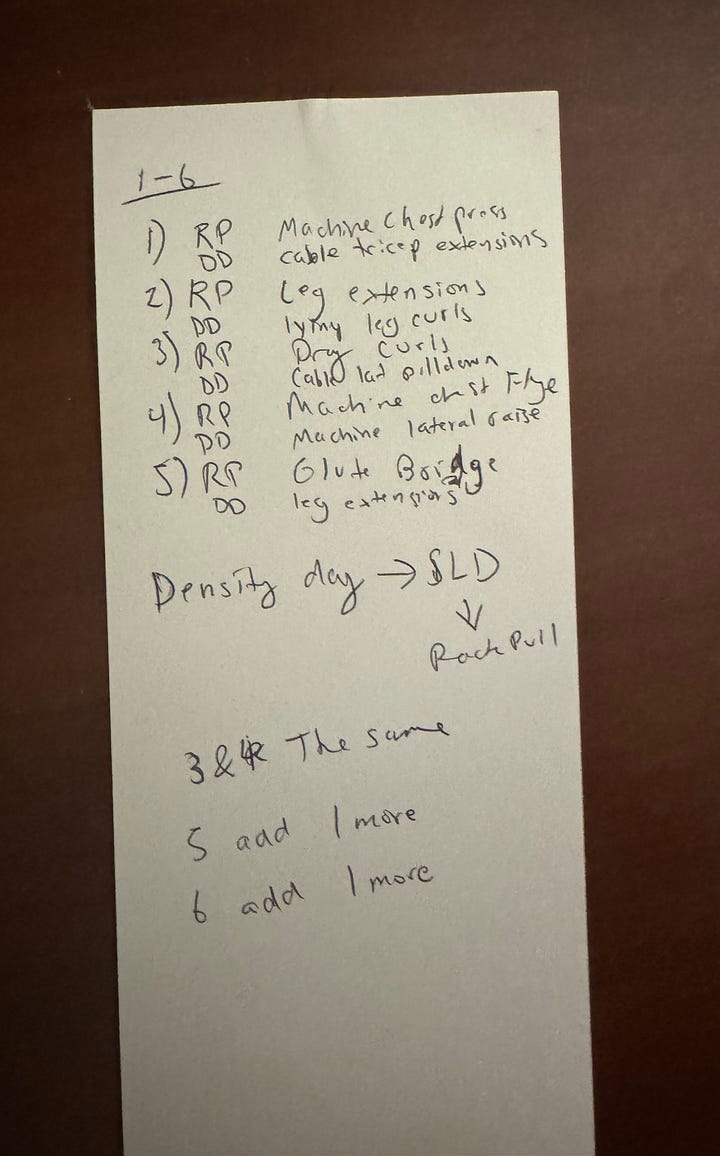 1-6
1) RP Machine Chest press
DD cable tricep extensions
2) RP Leg extensions
DD lying leg curls
3) RP Drag curls
DD Cable lat pulldown
4) RP Machine chest Flye
DD Machine lateral raise
5) RP Glute Bridge
DD leg extensions
Density day → SLD
↓
Rack Pull
3 & 4 The same
5 add 1 more
6 add 1 more